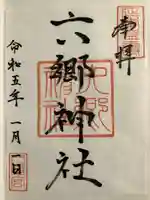 奉拝
六郷神社
令和五年一月一日